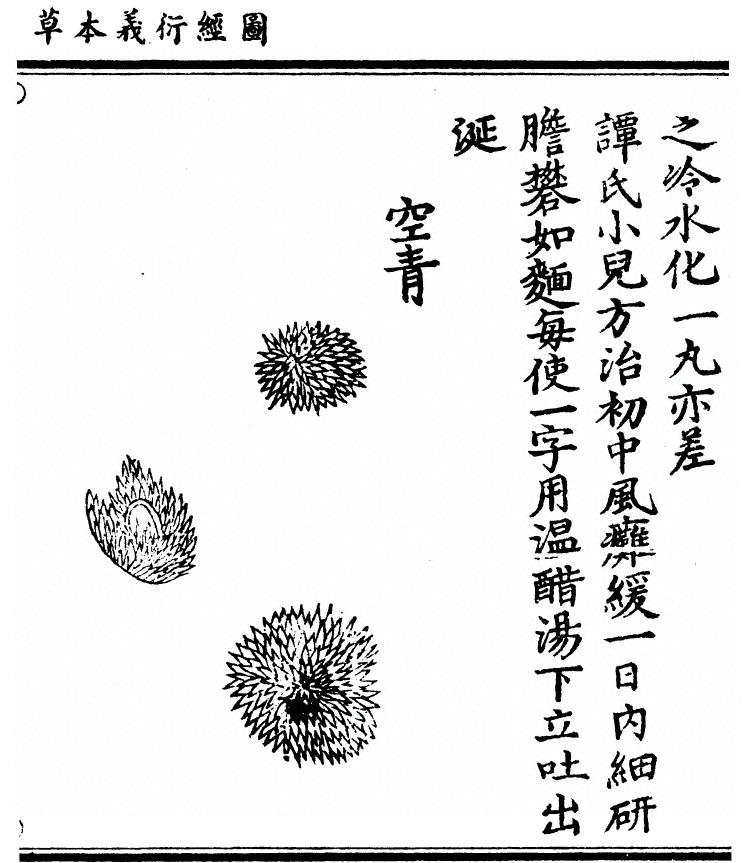 圖經衍義本草
之冷水化一丸亦差
譚氏小兒方治初中風癱緩一日內細研
膽礬如麵每使一字用温醋湯下立吐出
涎
空青